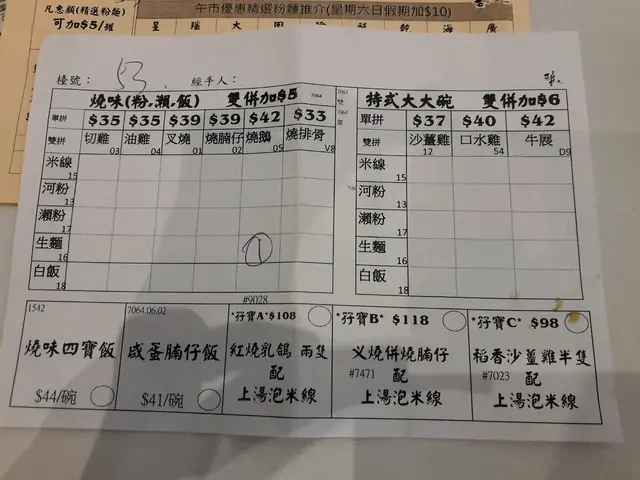 凡惠顧(精選粉麵)
可加$5/
午市優惠精選粉麵推介(星期六日假期加$10)
星 瑤 大
海 廣
檯號： 53 經手人：
燒味(粉.瀨.飯) 雙併加$5 7064
單拼 $35 $35 $39 $39 $42 $33
雙拼 切雞 03 油雞 04 叉燒 01 燒腩仔 02 燒鵝 05 燒排骨 V8
米線 15
河粉 13
瀨粉 17
生麵 16 1
白飯 18
#9028
特式大大碗 雙併加$6
單拼 $37 $40 $42
雙拼 沙薑雞 12 口水雞 54 牛展 D9
米線 15
河粉 13
瀨粉 17
生麵 16
白飯 18
1542
燒味四寶飯
$44/碗
7064.06.02
咸蛋腩仔飯
$41/碗
*孖寶A*$108
紅燒乳鴿 兩隻
配
上湯泡米線
*孖寶B* $118
义燒併燒腩仔
#7471 配
上湯泡米線
*孖寶C* $98
稻香沙薑雞半隻
#7023 配
上湯泡米線